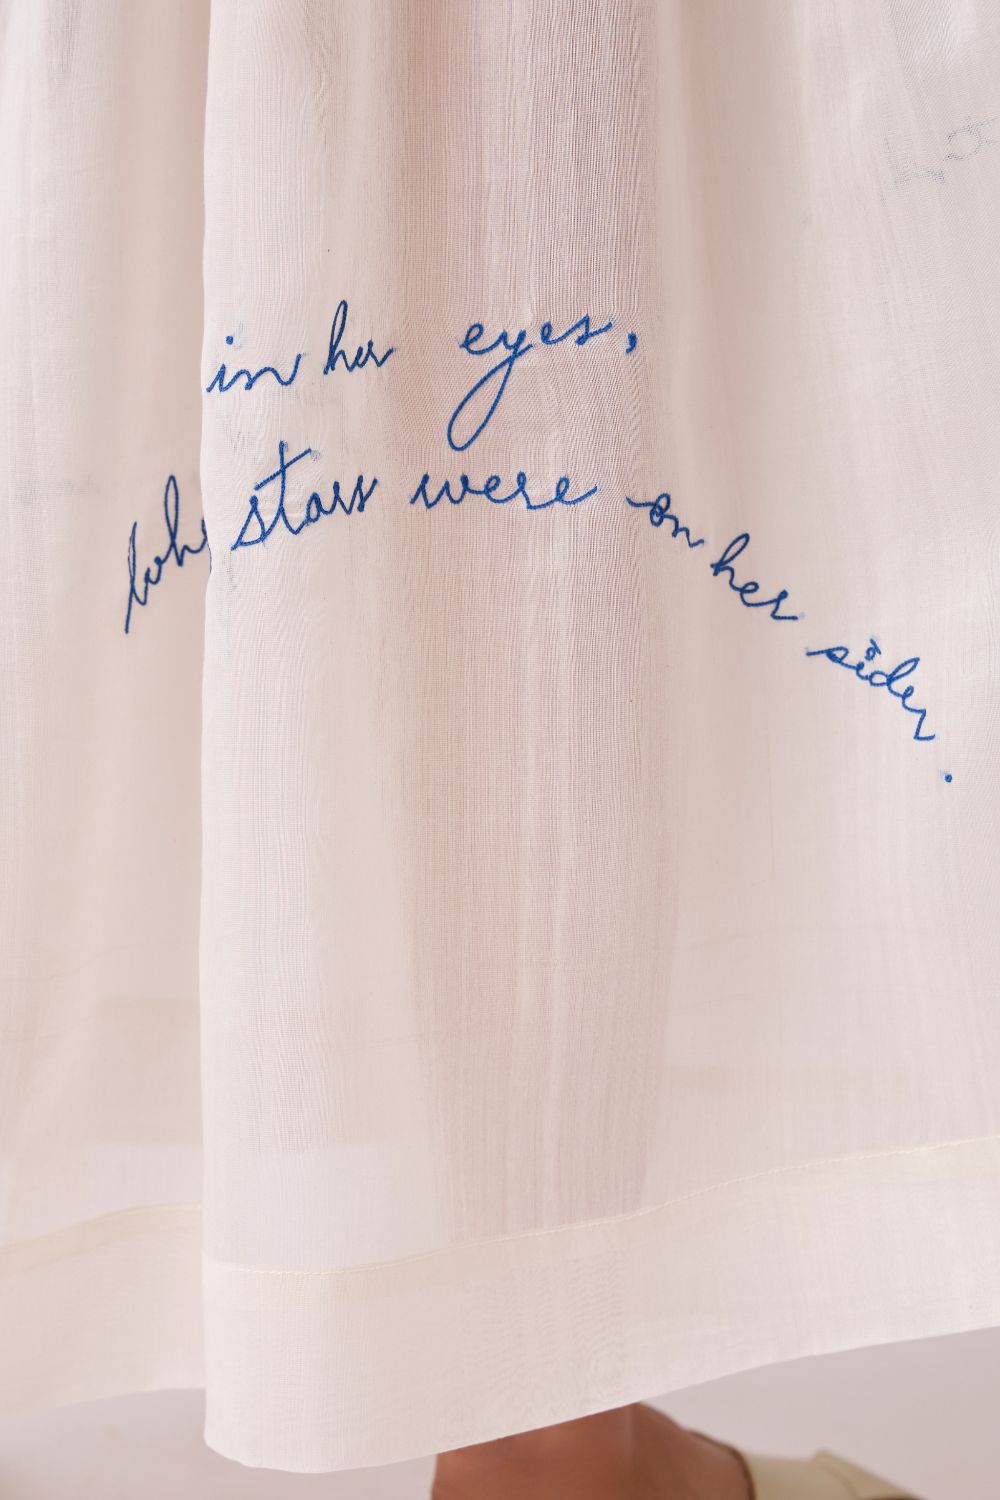 in her eyes,
the stars were on her side,
.